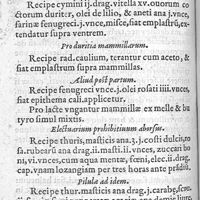 Recipe cymini ij.drag.vitella xv.ouorum co
ctorum duriter, olei de lilio, & aneti ana j.vnce,
farinæ fenugreci .j.vnce, misce, fiat emplastrũ, ex-
tendatur supra ventrem.
Pro duritia mammillarum.
Recipe rad.caulium, terantur cum aceto, &
fiat emplastrum supra mammillas.
Aliud post partum.
Recipe fenugreci vnce.j.olei rosati iiij.vnces,
fiat epithema cali.applicetur.
Pro lacte vngantur mammillæ ex melle & bu
tyro simul mixtis.
Electuarium prohibitiuum aborsus.
Recipe thuris, masticis ana.3.j.costi dulcis, ro
sa.rubearũ ana drag.ij.masti.ij.vnces, zuccari bo
ni vj.vnces, cum aqua mentæ, fœni, elec.ij.drag.
cap.vnam lozangiam per tres horas ante prãdiũ.
Pilulæ ad idem.
Recipe thur.masticis ana drag.j.carabe,